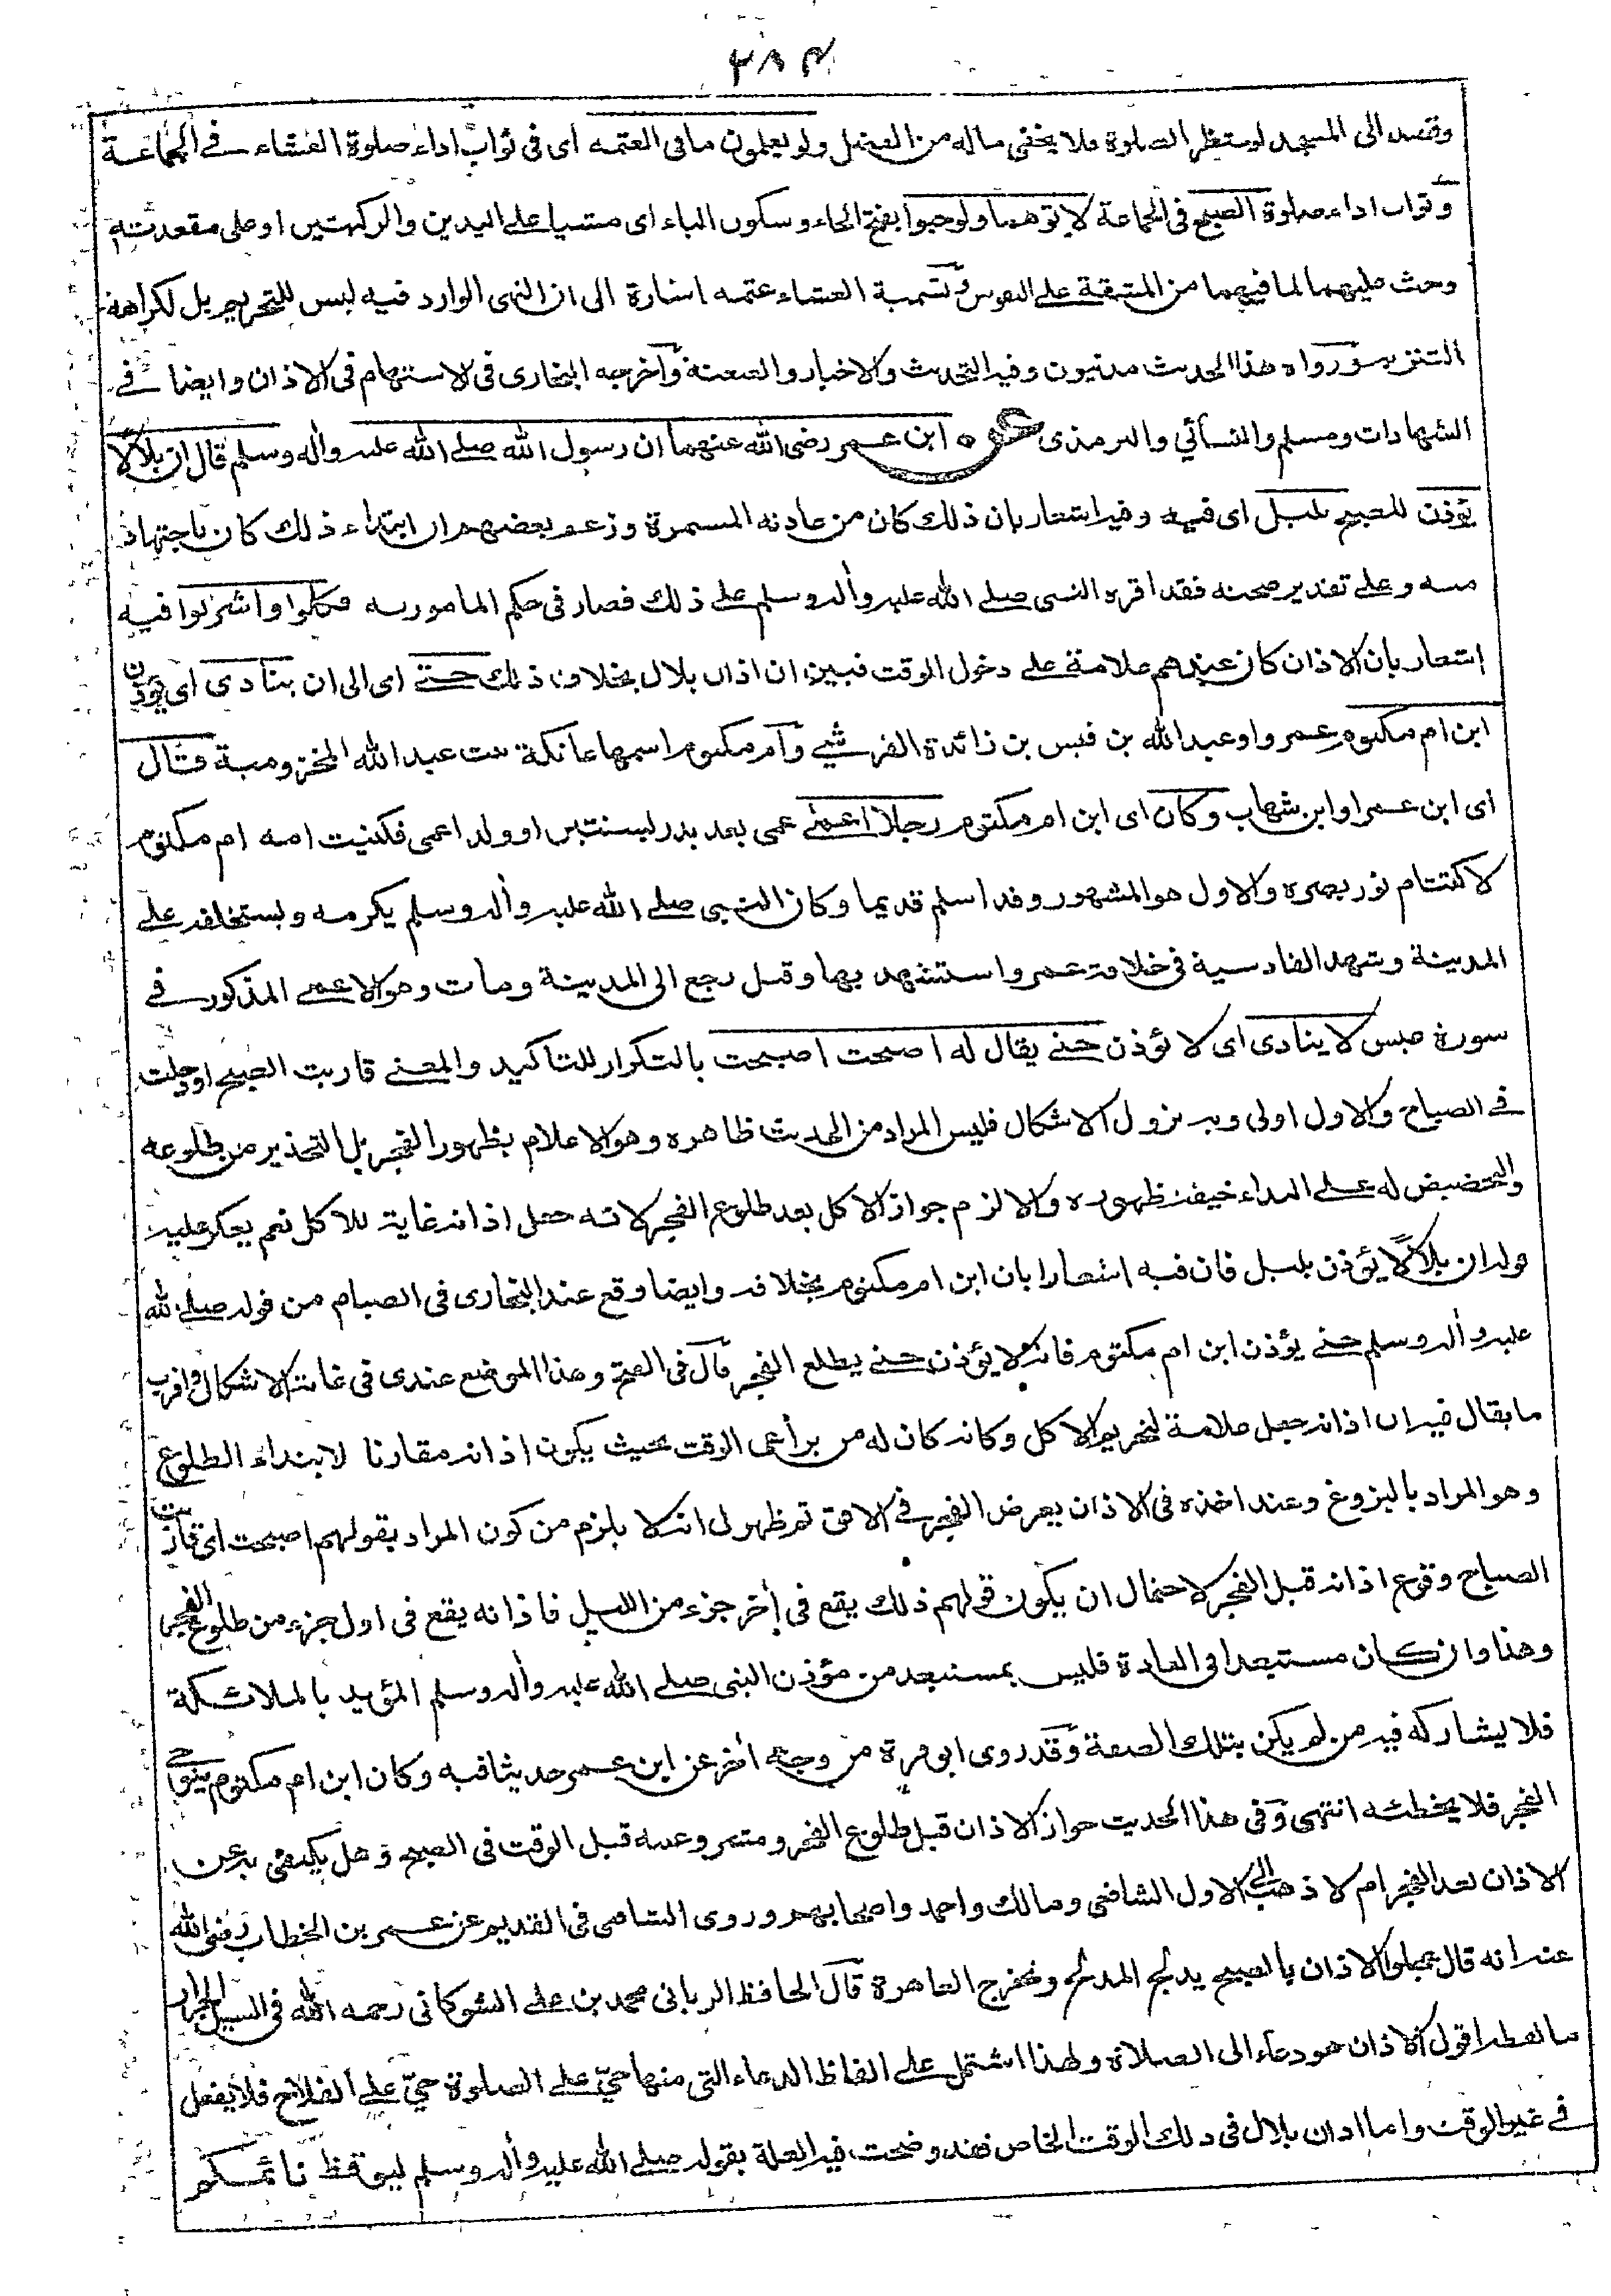 ٢٨٣
وقصد الى المسجد لو ستظر الصلوة فلا يخفى ماله من الفضل ولو يعلمون ما فى العتمه اى فى ثواب اداء صلوة العشاء فے الجماعة
وثواب اداء صلوة الصبح فى الجماعة لاتوهما ولو حبوا بفتح الحاء وسكون الباء اى مشيا علے اليدين والركبتين او على مقعدته
وحث عليهما لما فيهما من المشقة علے النفوس وتسمية العشاء عتمه اشارة الى ان النهى الوارد فيه ليس للتحريم بل لكراهة
التنزيه ورواه هذا الحديث مدنيون وفيه التحديث والاخبار والعنعنة وأخرجه البخارى فى الاستهام فى الاذان وايضا فے
الشهادات ومسلم والنسائي والترمذى عن ابن عمر رضى الله عنهما ان رسول الله صلے الله عليه وأله وسلم قال ان بلالا
يؤذن للصبح بليل اى فيه وفيه اشعار بان ذلك كان من عادته المستمرة وزعم بعضهم ان ابتداء ذلك كان باجتهاد
منه وعلے تقدير صحته فقد اقره النبى صلے الله عليه وأله وسلم علے ذلك فصار فى حكم المامور به فكلوا واشربوا فيه
إشعار بان الاذان كان عندهم علامة علے دخول الوقت فبين ان اذان بلال بخلاف ذلك حتے اى الى ان ينادى اى يؤذن
ابن ام مكتوم عمرو او عبد الله بن قيس بن زائدة القرشے وأم مكتوم اسمها عاتكة بنت عبد الله المخزومية قال
اى ابن عمر او ابن شهاب وكان اى ابن ام مكتوم رجلا اعمے عمى بعد بدر بسنتين او ولد اعمى فكنيت امه ام مكتوم
لاكتتام نور بصره والاول هو المشهور وقد اسلم قديما وكان النبى صلے الله عليه وأله وسلم يكرمه ويستخلفه علے
المدينة وشهد القادسية فى خلافة عمر واستشهد بها وقيل رجع الى المدينة ومات وهو الاعمے المذكور فے
سورة عبس لا ينادى اى لا يؤذن حتے يقال له اصبحت اصبحت بالتكرار للتاكيد والمعنے قاربت الصبح او دخلت
فے الصباح والاول اولى وبه يزول الاشكال فليس المراد من الحديث ظاهره وهو الاعلام بظهور الفجر بل التحذير من طلوعه
والتحضيض له علے النداء خيفة ظهوره والا لزم جواز الاكل بعد طلوع الفجر لانه جعل اذانه غاية للاكل نعم يعكر عليه
قوله ان بلالا يؤذن بليل فان فيه اشعارا بان ابن ام مكتوم بخلافه وايضا وقع عند البخارى فى الصيام من قوله صلے الله
عليه وأله وسلم حتے يؤذن ابن ام مكتوم فانه لا يؤذن حتے يطلع الفجر قال فى الفتح وهذا الموضع عندى فى غاية الاشكال واقرب
ما يقال فيه ان اذانه جعل علامة لتحريم الاكل وكانه كان له من يراعى الوقت بحيث يكون اذانه مقارنا لابتداء الطلوع
وهو المراد بالبزوغ وعند اخذه فى الاذان يعرض الفجر فے الافق ثم ظهر لى انه لا يلزم من كون المراد بقولهم اصبحت اى قاربت
الصباح وقوع اذانه قبل الفجر لاحتمال ان يكون قولهم ذلك يقع فى أخر جزء من الليل فاذانه يقع فى اول جزء من طلوع الفجر
وهذا وان كان مستبعدا فى العادة فليس بمستبعد من مؤذن النبى صلے الله عليه وأله وسلم المؤيد بالملائكة
فلا يشاركه فيه من لم يكن بتلك الصفة وقد روى ابو قرة من وجه أخر عن ابن عمر حديثا فيه وكان ابن ام مكتوم يتوخى
الفجر فلا يخطئه انتهى وفى هذا الحديث جواز الاذان قبل طلوع الفجر ومشروعيته قبل الوقت فى الصبح وهل يكتفى به عن
الاذان بعد الفجر ام لا ذهب الى الاول الشافعى ومالك واحمد واصحابهم وروى الشافعى فى القديم عن عمر بن الخطاب رضى الله
عنه انه قال عجلوا الاذان بالصبح يدلج المدلج وتخرج العاهرة قال الحافظ الربانى محمد بن علے الشوكانى رحمه الله فى السيل الجرار
ما لفظه اقول الاذان هو دعاء الى الصلاة ولهذا اشتمل علے الفاظ الدعاء التى منها حىّ علے الصلوة حىّ علے الفلاح فلا يفعل
فے غير الوقت واما اذان بلال فى ذلك الوقت الخاص فقد وضحت فيه العلة بقوله صلے الله عليه وأله وسلم ليوقظ نائمكم